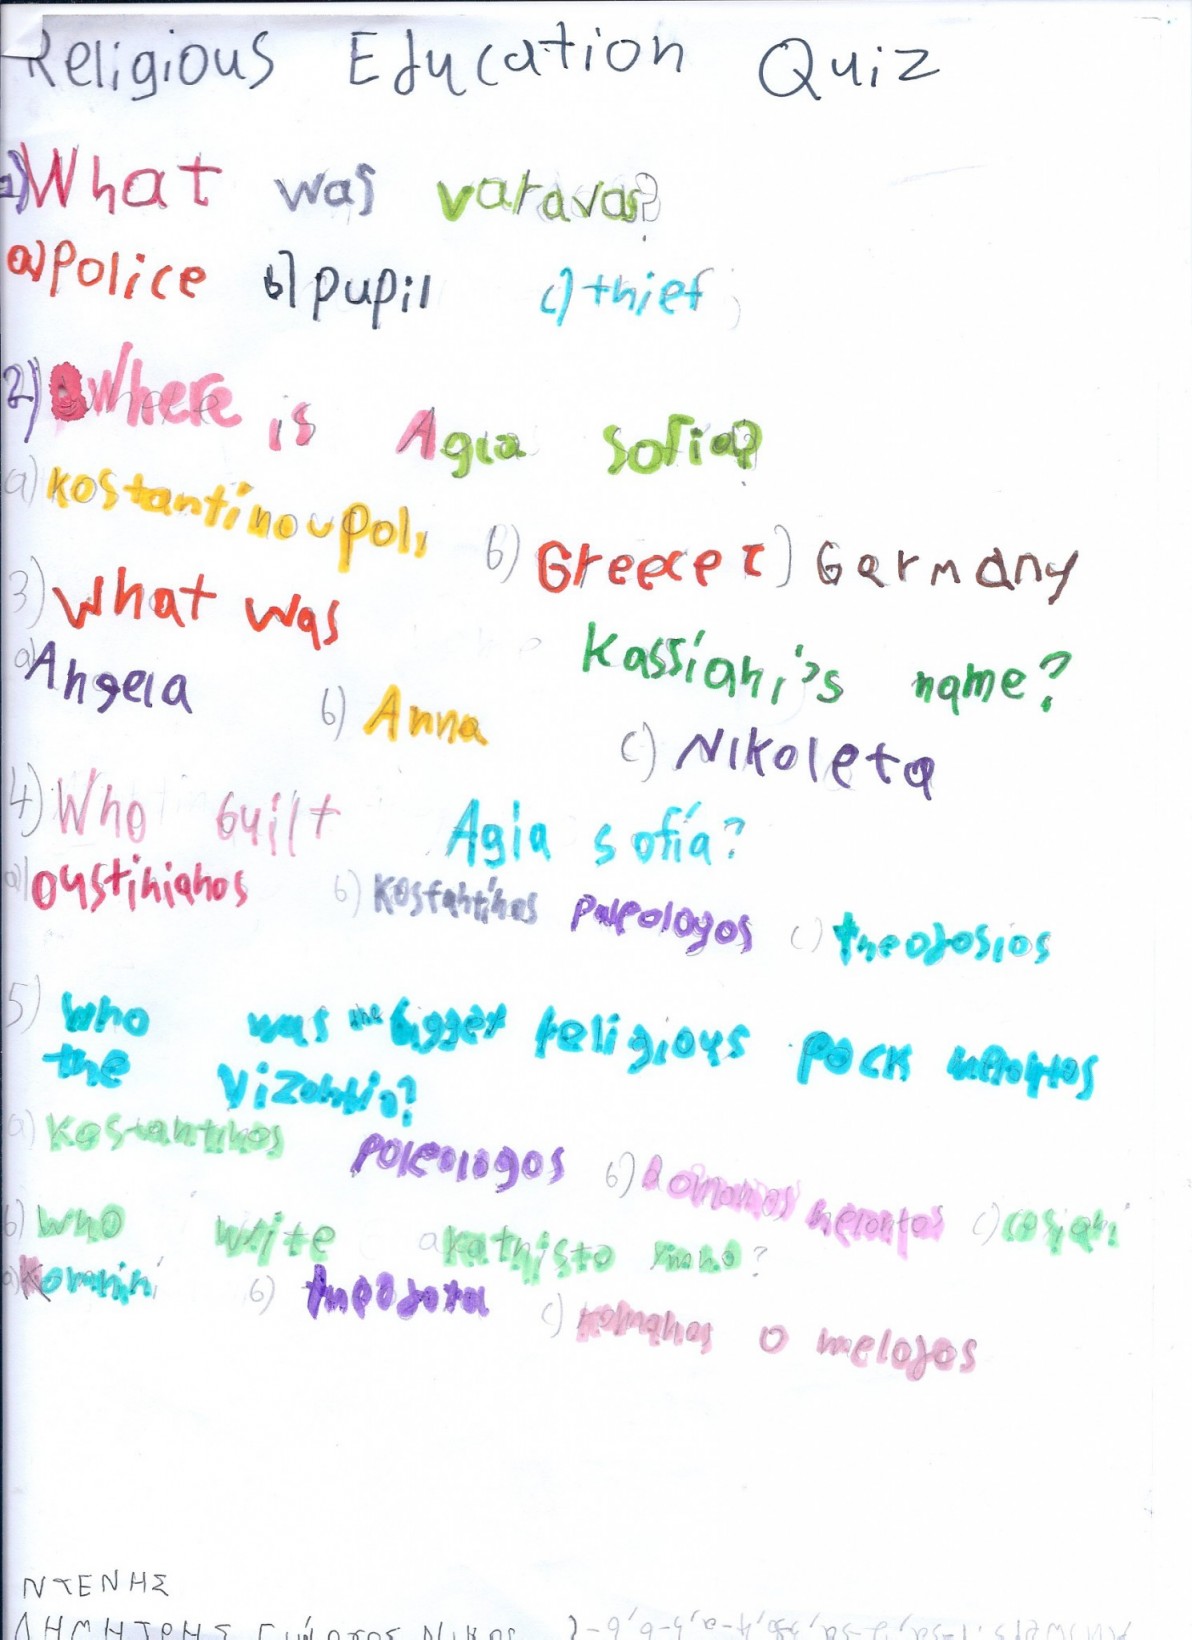 Religious Education Quiz
1) What was varavas?
a) Police b) pupil c) thief
2) Where is Agia sofia?
a) kostantinoupoli b) Greece c) Germany
3) What was Kassiani's name?
a) Angela b) Anna c) Nikoleta
4) Who built Agia sofía?
a) oustinianos b) Kostantinos paleologos c) theodosios
5) Who was the bigger religious pock
the
a) Kostantinos paleologos b) Romanos c) cosiani
6) who write akathisto imno?
a) Komnini b) theodora c) romanos o melodos
ΝΤΕΝΗΣ
ΔΗΜΗΤΡΗΣ Γιώργος Νικος